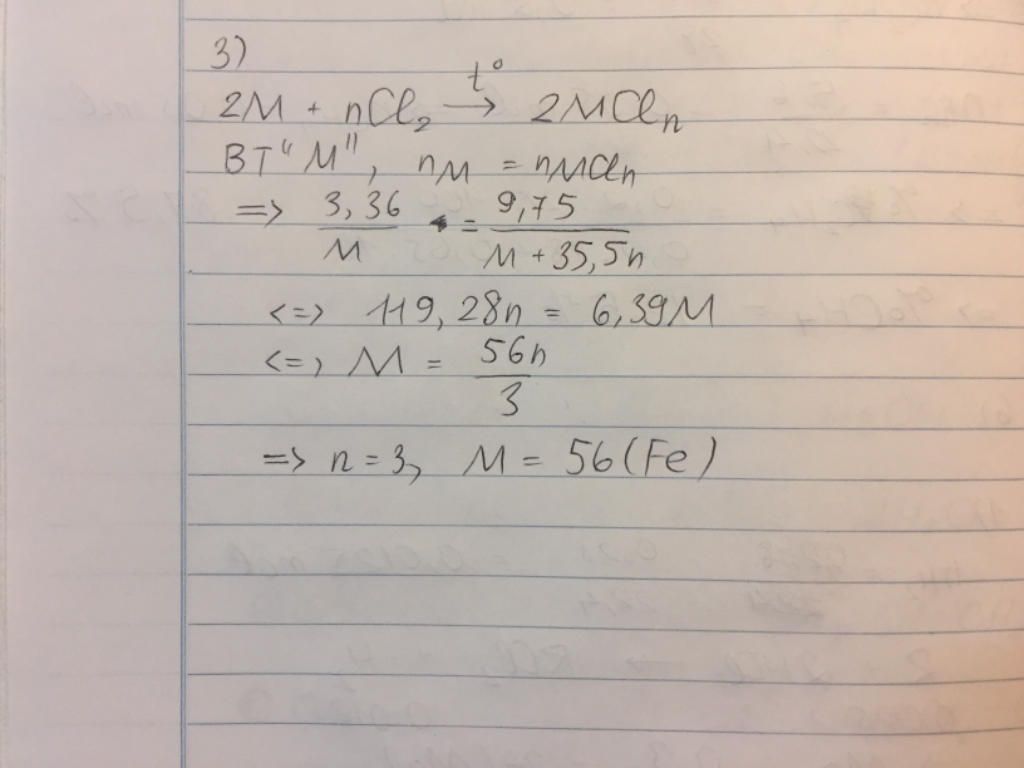 3)
2M + nCl₂ —t°→ 2MClₙ
BT "M", n_M = n_MClₙ
=> 3,36/M = 9,75/(M + 35,5n)
<=> 119,28n = 6,39M
<=> M = 56n/3
=> n = 3, M = 56 (Fe)